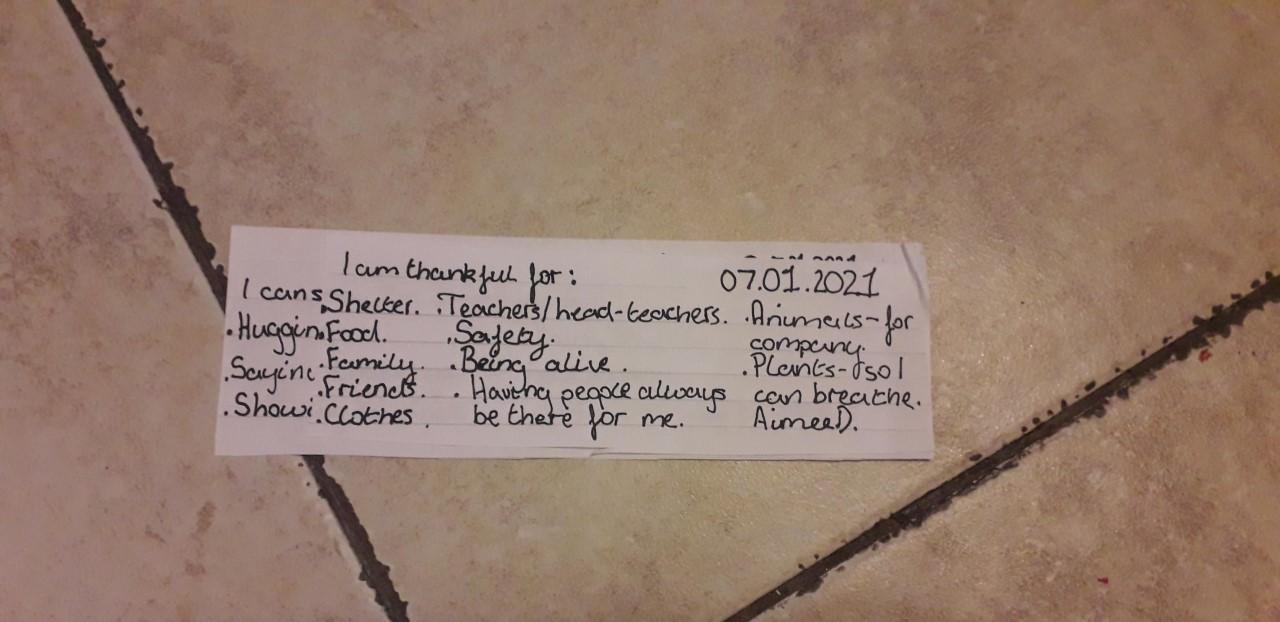 I am thankful for: 07.01.2021
I can s
. Huggin
. Sayinc
. Showi
. Shelter.
. Food.
. Family.
. Friends.
. Clothes.
. Teachers/head-teachers.
. Safety.
. Being alive.
. Having people always
be there for me.
. Animals-for
company.
. Plants- so I
can breathe.
Aimee D.